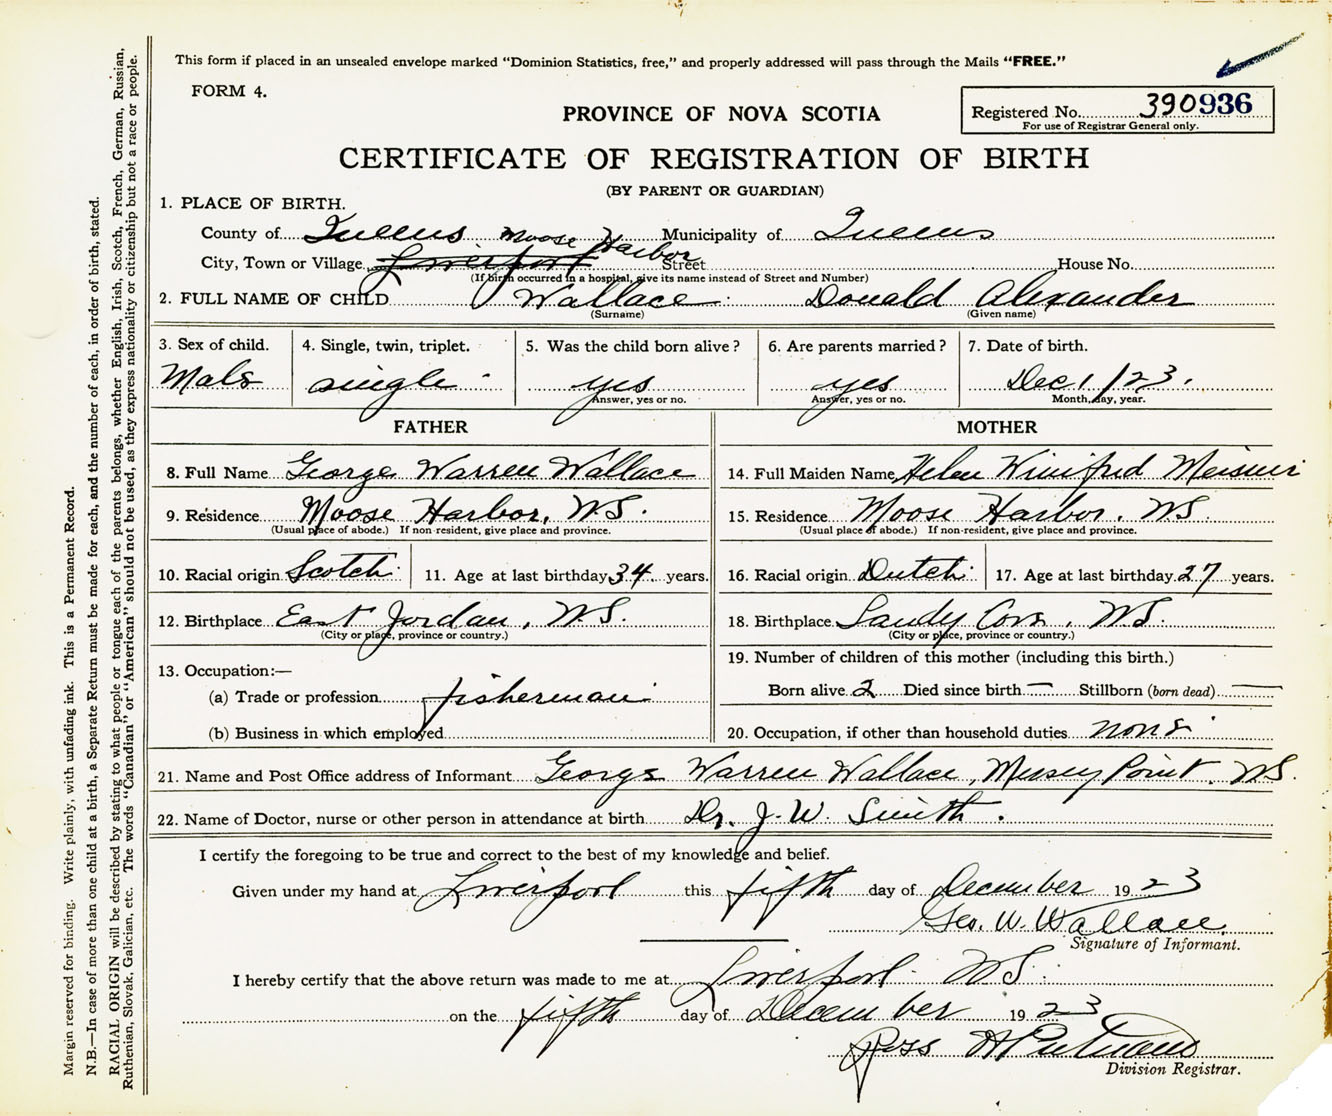 This form if placed in an unsealed envelope marked "Dominion Statistics, free," and properly addressed will pass through the Mails "FREE."
FORM 4.
Registered No. 390936
For use of Registrar General only.
PROVINCE OF NOVA SCOTIA
CERTIFICATE OF REGISTRATION OF BIRTH
(BY PARENT OR GUARDIAN)
1. PLACE OF BIRTH.
County of Queens Municipality of Queens
Moose Harbor
City, Town or Village Liverpool Street House No.
(If birth occurred in a hospital, give its name instead of Street and Number)
2. FULL NAME OF CHILD Wallace Donald Alexander
(Surname) (Given name)
3. Sex of child. 4. Single, twin, triplet. 5. Was the child born alive? 6. Are parents married? 7. Date of birth.
Male single yes yes Dec 1/23.
Answer, yes or no. Answer, yes or no. Month, day, year.
FATHER MOTHER
8. Full Name George Warren Wallace 14. Full Maiden Name Helen Winifred Meisner
9. Residence Moose Harbor, N.S. 15. Residence Moose Harbor, N.S
(Usual place of abode.) If non-resident, give place and province. (Usual place of abode.) If non-resident, give place and province.
10. Racial origin Scotch 11. Age at last birthday 34 years. 16. Racial origin Dutch 17. Age at last birthday 27 years.
12. Birthplace East Jordan, N.S. 18. Birthplace Sandy Cove, N.S.
(City or place, province or country.) (City or place, province or country.)
13. Occupation:—
(a) Trade or profession fisherman
(b) Business in which employed
19. Number of children of this mother (including this birth.)
Born alive 2 Died since birth — Stillborn (born dead) —
20. Occupation, if other than household duties none
21. Name and Post Office address of Informant George Warren Wallace, Mersey Point, N.S.
22. Name of Doctor, nurse or other person in attendance at birth Dr. J. W. Smith.
I certify the foregoing to be true and correct to the best of my knowledge and belief.
Given under my hand at Liverpool this fifth day of December 1923
Geo. W. Wallace
Signature of Informant.
I hereby certify that the above return was made to me at Liverpool N.S.
on the fifth day of December 1923
Ross
Division Registrar.
Margin reserved for binding. Write plainly, with unfading ink. This is a Permanent Record.
N.B.—In case of more than one child at a birth, a Separate Return must be made for each, and the number of each, in order of birth, stated.
RACIAL ORIGIN will be described by stating to what people or tongue each of the parents belongs, whether English, Irish, Scotch, French, German, Russian,
Ruthenian, Slovak, Galician, etc. The words "Canadian" or "American" should not be used, as they express nationality or citizenship but not a race or people.